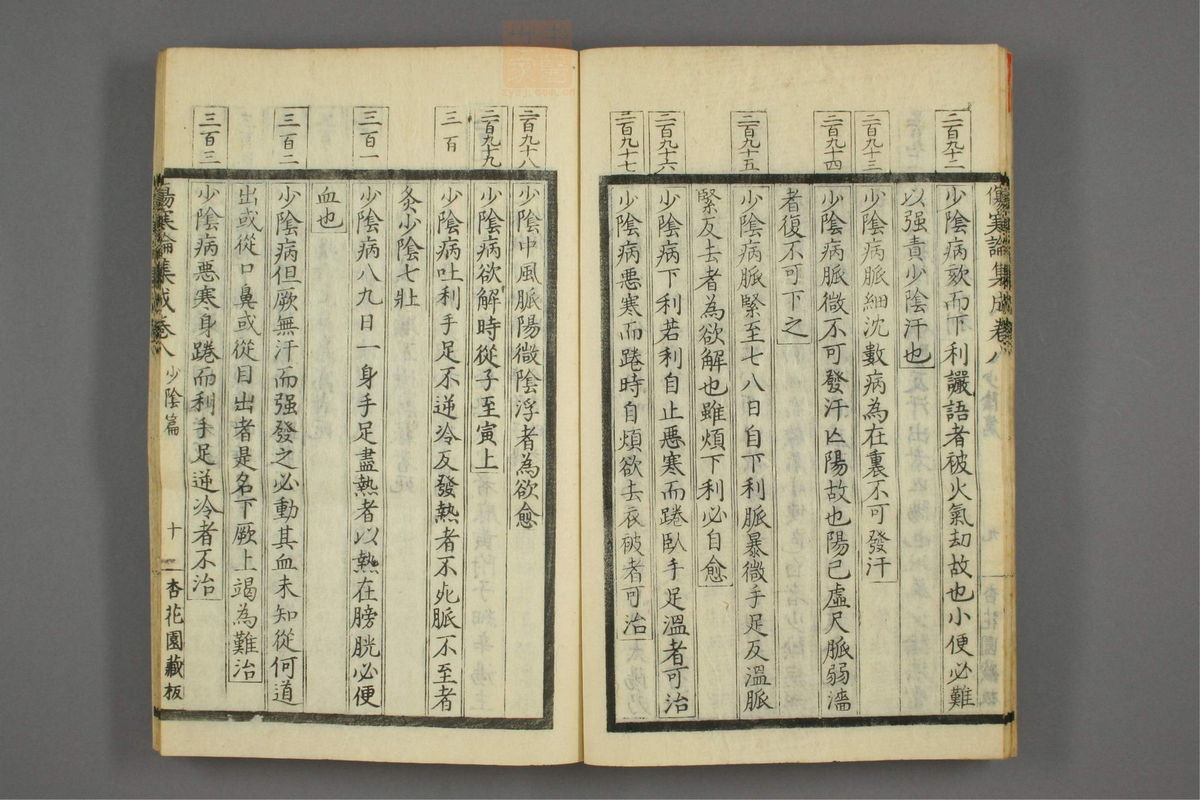 傷寒論集成卷八
二百九十二
少陰病欬而下利讝語者被火氣劫故也小便必難
以强責少陰汗也
二百九十三
少陰病脈細沈數病為在裏不可發汗
二百九十四
少陰病脈微不可發汗亡陽故也陽已虛尺脈弱濇
者復不可下之
二百九十五
少陰病脈緊至七八日自下利脈暴微手足反溫脈
緊反去者為欲解也雖煩下利必自愈
二百九十六
少陰病下利若利自止惡寒而踡臥手足溫者可治
二百九十七
少陰病惡寒而踡時自煩欲去衣被者可治
二百九十八
少陰中風脈陽微陰浮者為欲愈
二百九十九
少陰病欲解時從子至寅上
三百
少陰病吐利手足不逆冷反發熱者不死脈不至者
灸少陰七壯
三百一
少陰病八九日一身手足盡熱者以熱在膀胱必便
血也
三百二
少陰病但厥無汗而强發之必動其血未知從何道
出或從口鼻或從目出者是名下厥上竭為難治
三百三
少陰病惡寒身踡而利手足逆冷者不治
傷寒論集成卷八 少陰篇 十 杏花園藏板